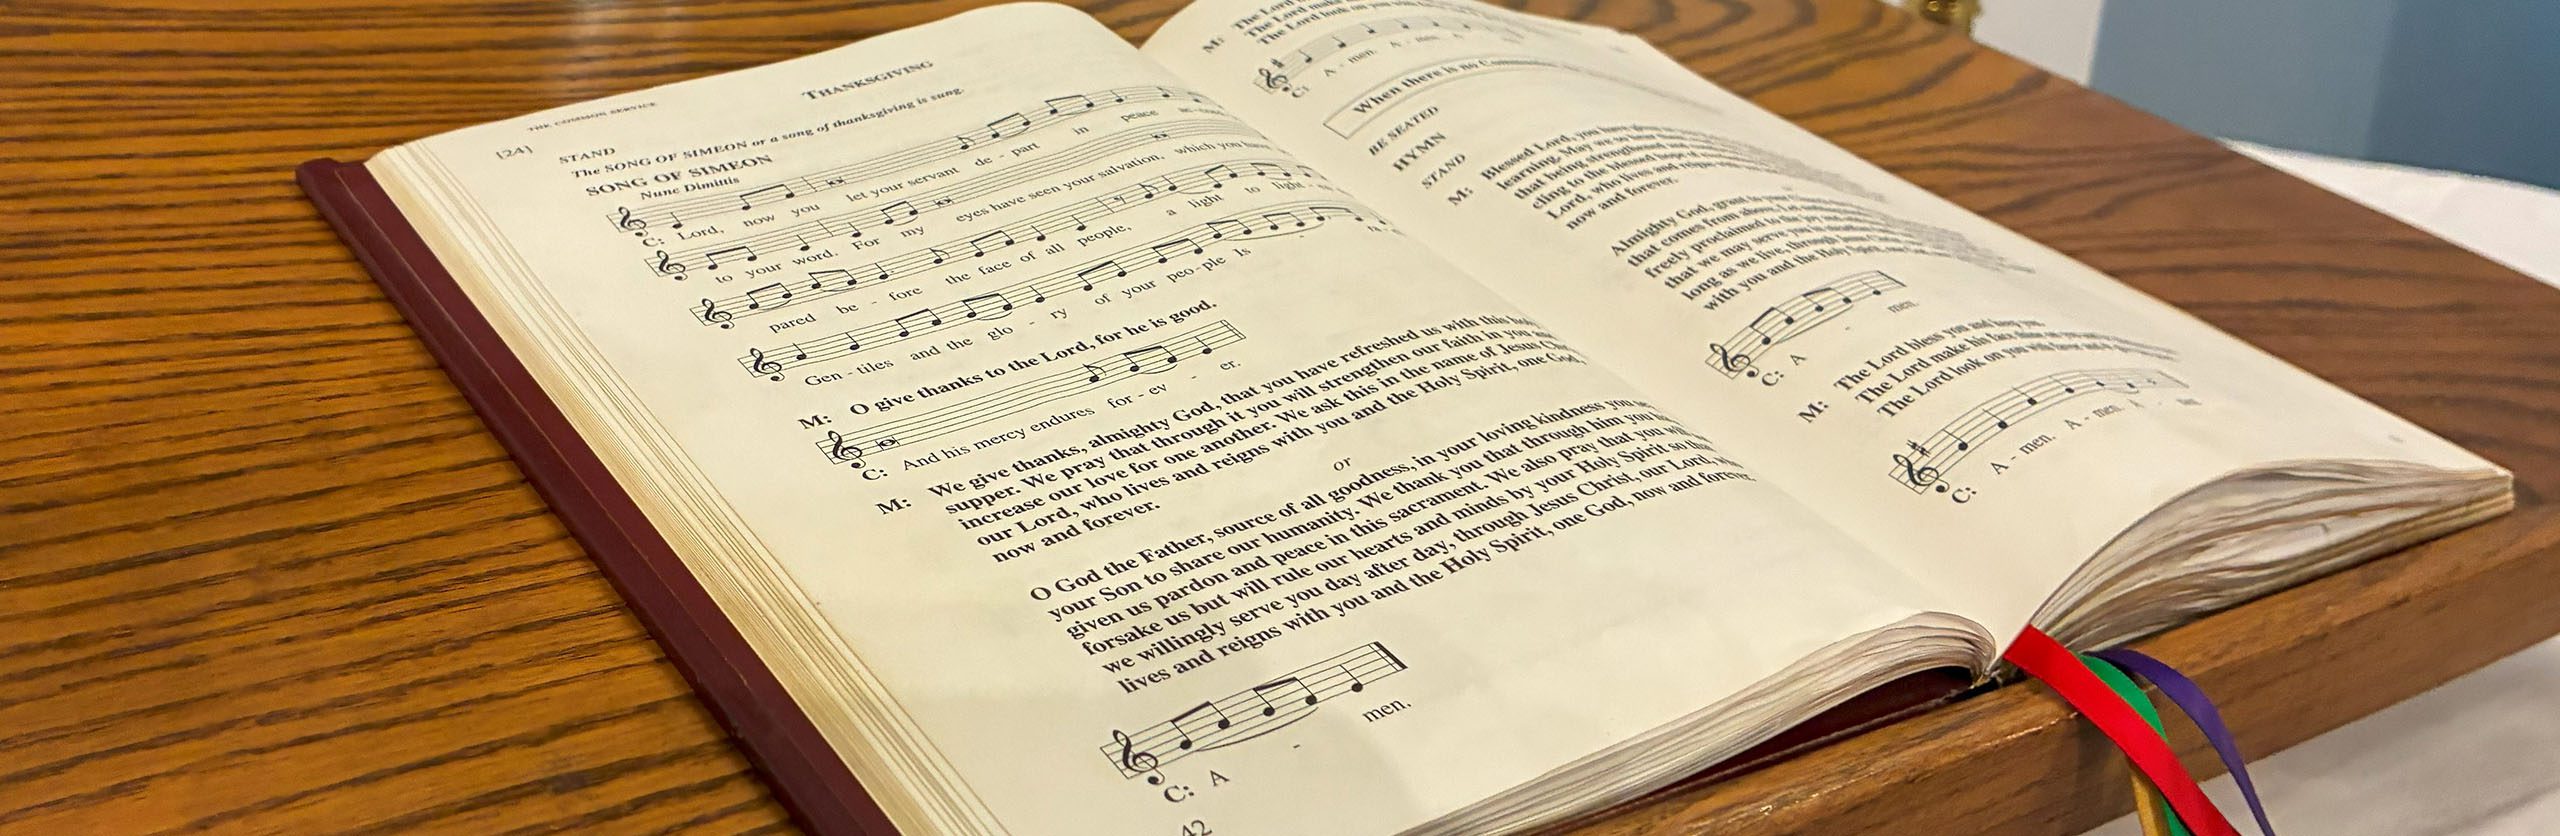 THE COMMON SERVICE
THANKSGIVING
[24] STAND
The SONG OF SIMEON or a song of thanksgiving is sung.
SONG OF SIMEON
Nunc Dimittis
C: Lord, now you let your servant de - part in peace
to your word. For my eyes have seen your salvation, which you have
pared be - fore the face of all people, a light to light -
Gen - tiles and the glo - ry of your peo - ple Is -
M: O give thanks to the Lord, for he is good.
C: And his mercy endures for - ev - er.
M: We give thanks, almighty God, that you have refreshed us with this
supper. We pray that through it you will strengthen our faith in you and
increase our love for one another. We ask this in the name of Jesus
our Lord, who lives and reigns with you and the Holy Spirit, one God,
now and forever.
or
O God the Father, source of all goodness, in your loving kindness you
your Son to share our humanity. We thank you that through him you
given us pardon and peace in this sacrament. We also pray that you will
forsake us but will rule our hearts and minds by your Holy Spirit so that
we willingly serve you day after day, through Jesus Christ, our Lord,
lives and reigns with you and the Holy Spirit, one God, now and forever.
C: A - men.
42
M: The Lord
The Lord make
The Lord look on you with
C: A - men. A - men. A
When there is no
BE SEATED
HYMN
STAND
M: Blessed Lord, you have
learning. May we so hear
that being strengthened
cling to the blessed hope
Lord, who lives and reigns
now and forever.
Almighty God, grant
that comes from above. Let
freely proclaimed to the joy
that we may serve you
long as we live, through
with you and the Holy Spirit,
C: A - men.
M: The Lord bless you and keep you.
The Lord make his face shine on you
The Lord look on you with favor and
C: A - men. A - men. A - men.